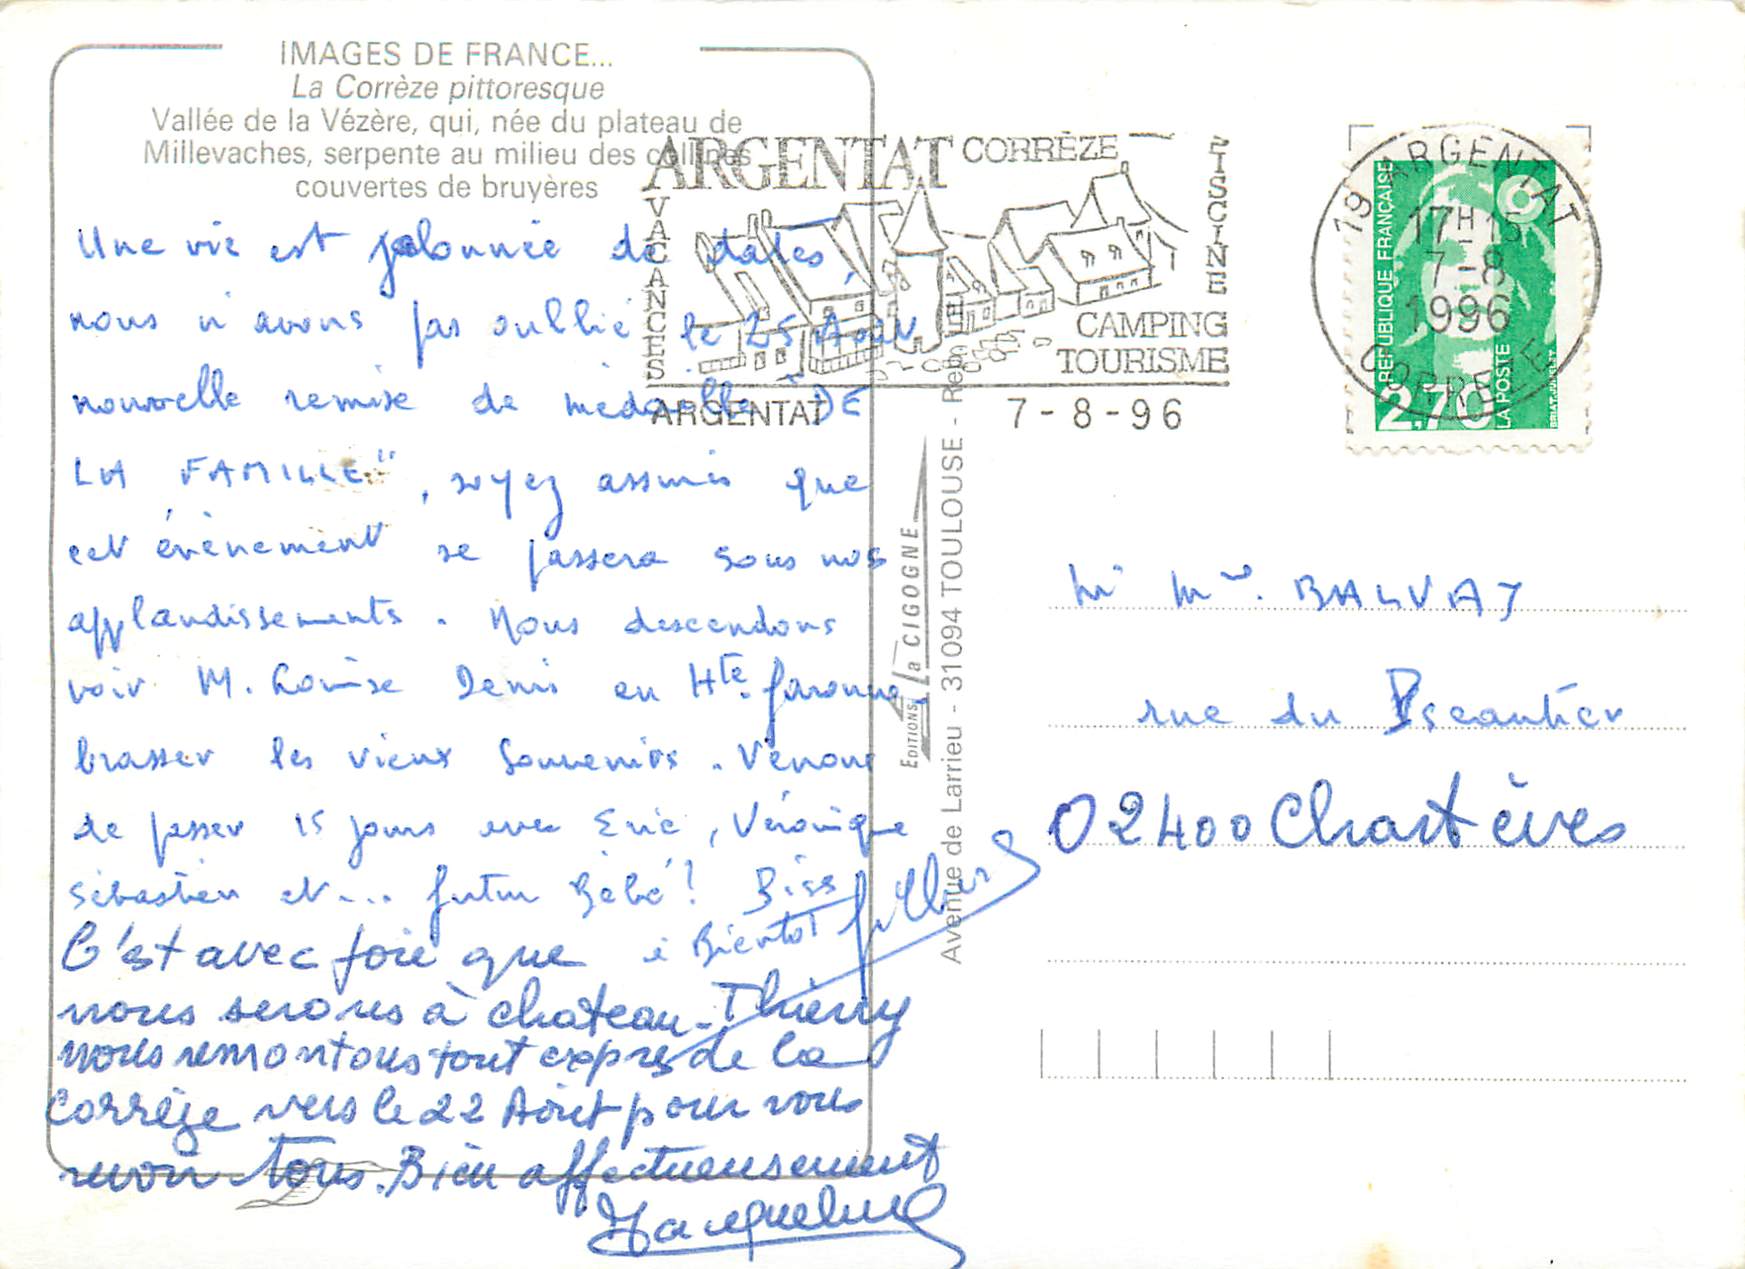 IMAGES DE FRANCE...
La Corrèze pittoresque
Vallée de la Vézère, qui, née du plateau de
Millevaches, serpente au milieu des collines
couvertes de bruyères
Une vie est jalonnée de dates,
nous n'avons pas oublié le 25 Août
nouvelle remise de médaille "DE
LA FAMILLE", soyez assurés que
cet évènement se passera sous nos
applaudissements. Nous descendons
voir M. Louise Denis en Hte. Garonne,
brasser les vieux souvenirs. Venons
de passer 15 jours avec Eric, Véronique
Sébastien et... futur Bébé! Biss
à Bientôt
C'est avec joie que
nous serons à chateau-Thierry
nous remontons tout exprès de la
Corrèze vers le 22 Août pour vous
revoir Tous. Bien affectueusement
Jacqueline
ARGENTAT CORRÈZE
VACANCES
PISCINE
CAMPING
TOURISME
ARGENTAT 7-8-96
19 ARGENTAT
17H15
7-8
1996
CORREZE
RÉPUBLIQUE FRANÇAISE
2,70
LA POSTE
BRIAT-JUMELET
EDITIONS La CIGOGNE
Avenue de Larrieu - 31094 TOULOUSE -
Mr Mme. BALVAY
rue du
02400 Chartèves